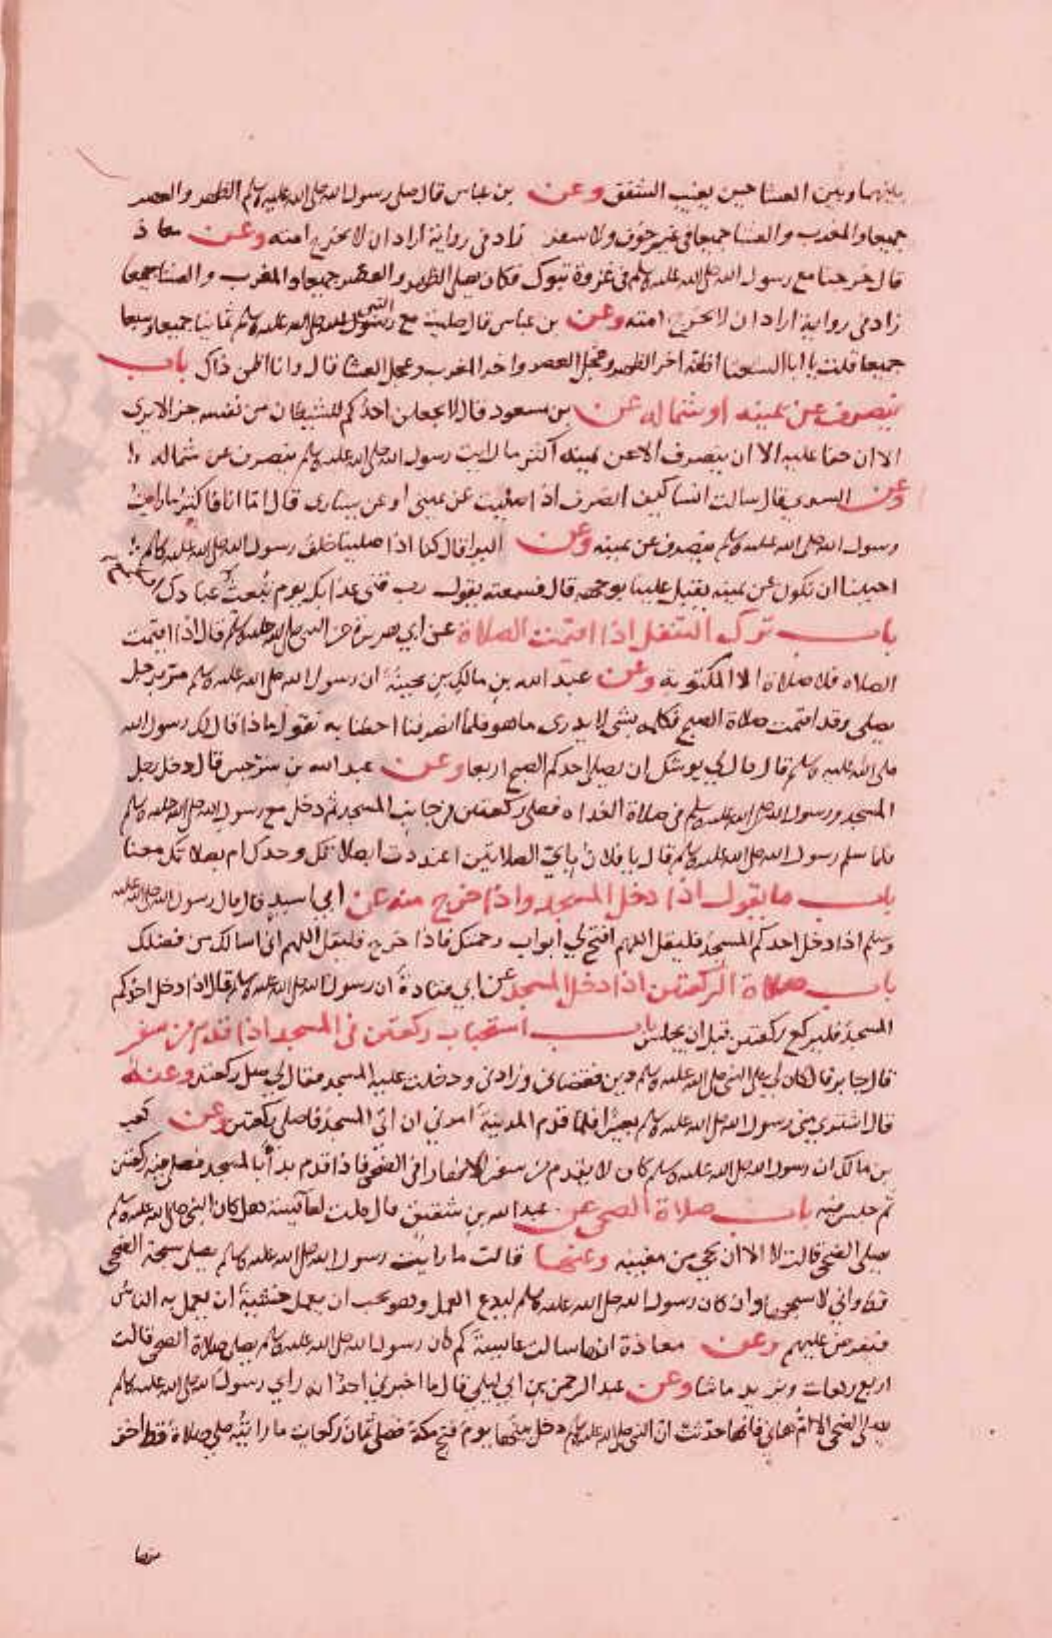 بينهما وبين العشا حين يغيب الشفق وعن بن عباس قال صلى رسول الله صلى الله عليه وسلم الظهر والعصر
جميعا والمغرب والعشا جميعا في غير خوف ولا سفر زاد في رواية اراد ان لا يحرج امته وعن معاذ
قال خرجنا مع رسول الله صلى الله عليه وسلم في غزوة تبوك فكان يصلي الظهر والعصر جميعا والمغرب والعشا جميعا
زاد في رواية اراد ان لا يحرج امته وعن بن عباس قال صليت مع النبي صلى الله عليه وسلم ثمانيا جميعا وسبعا
جميعا قلت يا ابا الشعثا اظنه اخر الظهر وعجل العصر واخر المغرب وعجل العشا قال وانا اظن ذاك باب
ينصرف عن يمينه او شماله عن بن مسعود قال لا يجعلن احدكم للشيطان من نفسه جزا لا يرى
الا ان حقا عليه الا ان ينصرف الا عن يمينه اكثر ما رايت رسول الله صلى الله عليه وسلم ينصرف عن شماله
وعن السدي قال سالت انسا كيف انصرف اذا صليت عن يميني او عن يساري قال اما انا فاكثر ما رايت
رسول الله صلى الله عليه وسلم ينصرف عن يمينه وعن البرا قال كنا اذا صلينا خلف رسول الله صلى الله عليه وسلم
احببنا ان نكون عن يمينه يقبل علينا بوجهه قال فسمعته يقول رب قني عذابك يوم تبعث عبادك
باب ترك التنفل اذا اقيمت الصلاة عن ابي هريرة عن النبي صلى الله عليه وسلم قال اذا اقيمت
الصلاه فلا صلاة الا المكتوبة وعن عبد الله بن مالك بن بحينة ان رسول الله صلى الله عليه وسلم مر برجل
يصلي وقد اقيمت صلاة الصبح فكلمه بشي لا يدرى ما هو فلما انصرفنا احطنا به نقول ماذا قال لك رسول الله
صلى الله عليه وسلم قال قال لي يوشك ان يصلي احدكم الصبح اربعا وعن عبد الله بن سرجس قال دخل رجل
المسجد ورسول الله صلى الله عليه وسلم في صلاة الغداه فصلى ركعتين في جانب المسجد ثم دخل مع رسول الله صلى الله عليه وسلم
فلما سلم رسول الله صلى الله عليه وسلم قال يا فلان باي الصلاتين اعتددت ابصلاتك وحدك ام بصلاتك معنا
باب ما يقول اذا دخل المسجد واذا خرج منه عن ابي اسيد قال قال رسول الله صلى الله عليه
وسلم اذا دخل احدكم المسجد فليقل اللهم افتح لي ابواب رحمتك فاذا خرج فليقل اللهم اني اسالك من فضلك
باب صلاة الركعتين اذا دخل المسجد عن ابي قتادة ان رسول الله صلى الله عليه وسلم قال اذا دخل احدكم
المسجد فليركع ركعتين قبل ان يجلس باب استحباب ركعتين في المسجد اذا قدم من سفر
قال جابر قال كان لي على النبي صلى الله عليه وسلم دين فقضاني وزادني ودخلت عليه المسجد فقال لي صل ركعتين وعنه
قال اشترى مني رسول الله صلى الله عليه وسلم بعيرا فلما قدم المدينة امرني ان اتي المسجد فاصلي ركعتين وعن كعب
بن مالك ان رسول الله صلى الله عليه وسلم كان لا يقدم من سفر الا نهارا في الضحى فاذا قدم بدا بالمسجد فصلى فيه ركعتين
ثم جلس فيه باب صلاة الضحى عن عبد الله بن شقيق قال قلت لعائشة هل كان النبي صلى الله عليه وسلم
يصلي الضحى قالت لا الا ان يجي من مغيبه وعنها قالت ما رايت رسول الله صلى الله عليه وسلم يصلي سبحة الضحى
قط واني لاسبحها وان كان رسول الله صلى الله عليه وسلم ليدع العمل وهو يحب ان يعمل خشية ان يعمل به الناس
فيفرض عليهم وعن معاذة انها سالت عايشة كم كان رسول الله صلى الله عليه وسلم يصلي صلاة الضحى قالت
اربع ركعات ويزيد ما شا وعن عبد الرحمن بن ابي ليلى قال ما اخبرني احد انه راي رسول الله صلى الله عليه وسلم
يصلي الضحى الا ام هاني فانها حدثت ان النبي صلى الله عليه وسلم دخل بيتها يوم فتح مكة فصلى ثمان ركعات ما رايته صلى صلاة قط اخف